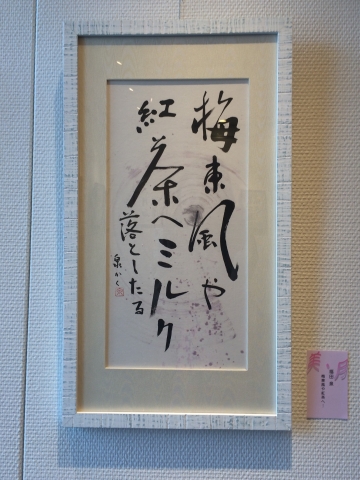 梅東風や
紅茶へミルク
落としたる
泉かく